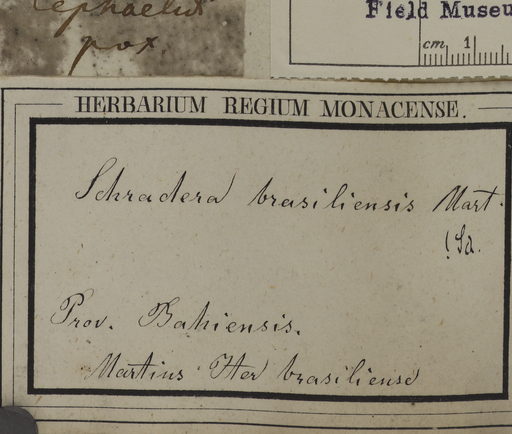 Cephaelis
pox.
Field Museu
cm 1
HERBARIUM REGIUM MONACENSE.
Schradera brasiliensis Mart.
! Sa.
Prov. Bahiensis.
Martius Iter brasiliense